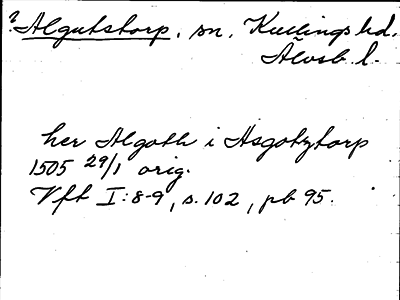 ? Algutstorp, sn, Kullings hd.
Älvsb. l.
her Algoth i Asgotztorp
1505 29/1 orig.
Vft I:8-9, s. 102, pb 95.